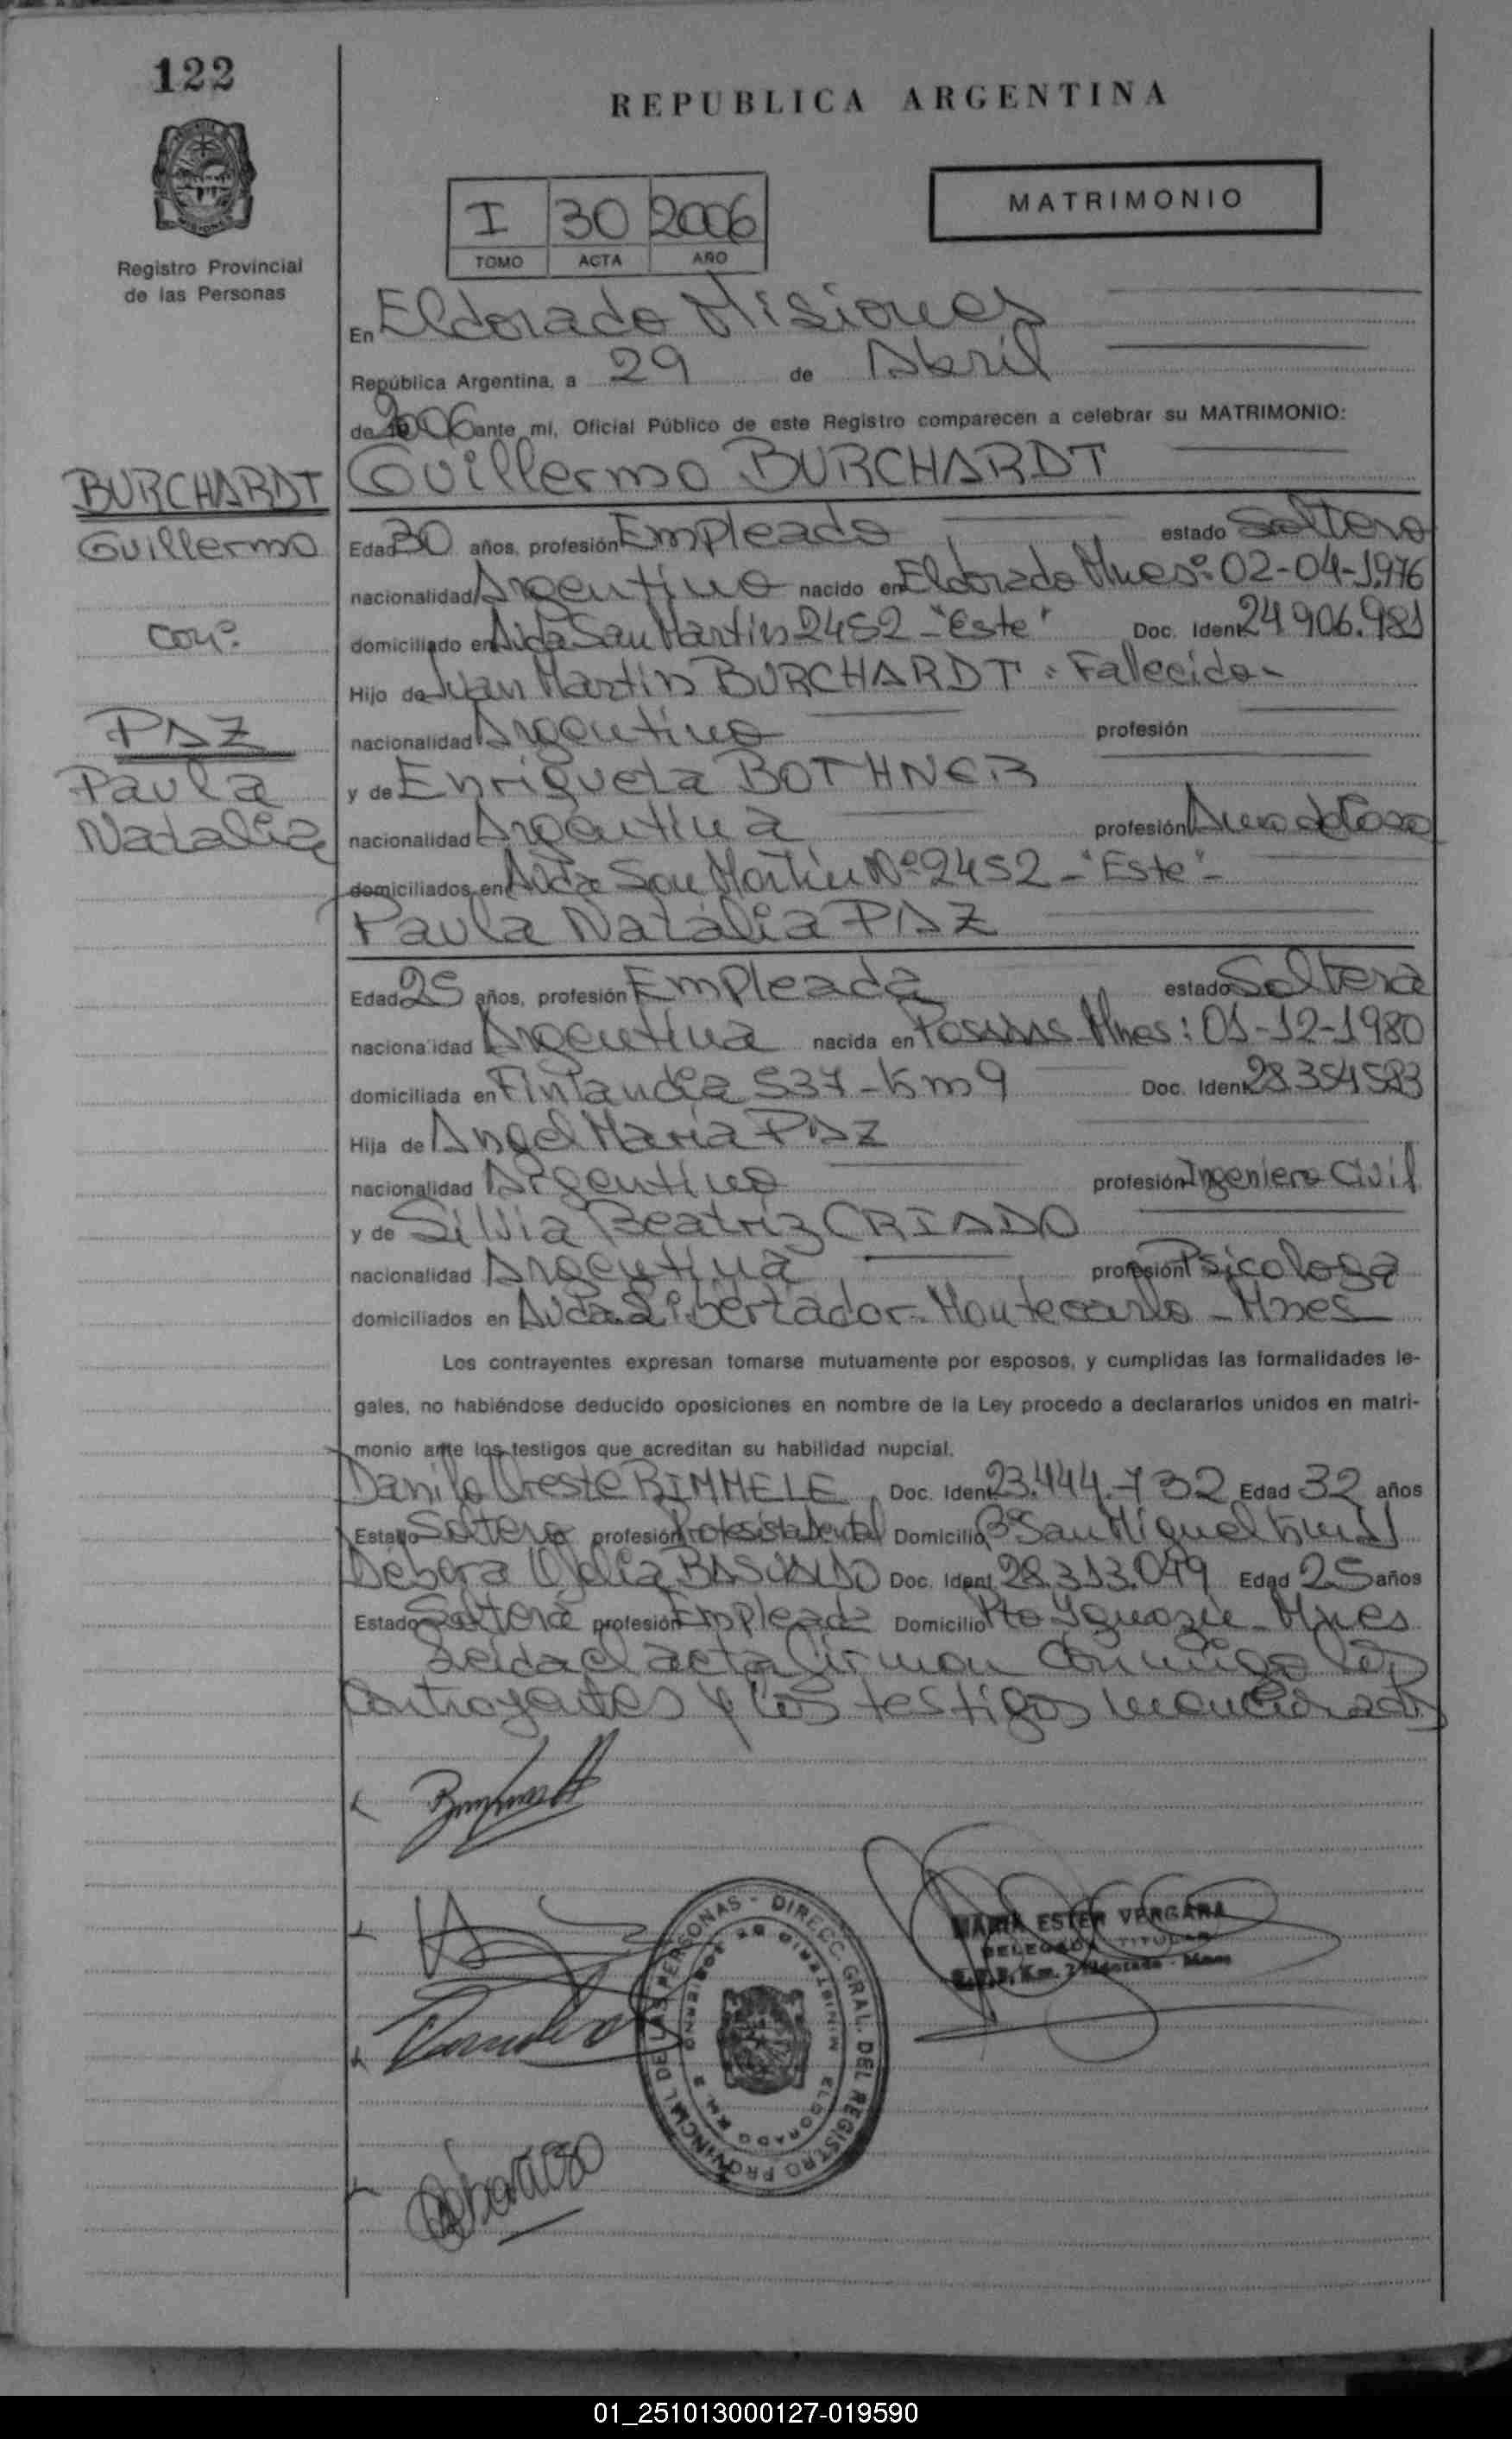 122
REPUBLICA ARGENTINA
MATRIMONIO
I 30 2006
TOMO ACTA AÑO
Registro Provincial
de las Personas
En Eldorado Misiones
República Argentina, a 29 de Abril
de 2006 ante mí, Oficial Público de este Registro comparecen a celebrar su MATRIMONIO:
BURCHARDT
Guillermo
con:
PAZ
Paula
Natalia
Guillermo BURCHARDT
Edad 30 años, profesión Empleado estado Soltero
nacionalidad Argentino nacido en Eldorado Mnes: 02-04-1976
domiciliado en Avda San Martin 2452 - "Este" Doc. Ident. 24.906.981
Hijo de Juan Martin BURCHARDT - Fallecido -
nacionalidad Argentino profesión
y de Enriqueta BOTHNER
nacionalidad Argentina profesión Ama de Casa
domiciliados en Avda San Martin Nº 2452 - "Este" -
Paula Natalia PAZ
Edad 25 años, profesión Empleada estado Soltera
nacionalidad Argentina nacida en Posadas Mnes: 01-12-1980
domiciliada en Finlandia 537 - Km 9 Doc. Ident. 28.354.583
Hija de Angel Maria PAZ
nacionalidad Argentino profesión Ingeniero Civil
y de Silvia Beatriz CRIADO
nacionalidad Argentina profesión Psicologa
domiciliados en Avda. Libertador - Montecarlo - Mnes
Los contrayentes expresan tomarse mutuamente por esposos, y cumplidas las formalidades le-
gales, no habiéndose deducido oposiciones en nombre de la Ley procedo a declararlos unidos en matri-
monio ante los testigos que acreditan su habilidad nupcial.
Danilo Oreste RIMMELE Doc. Ident. 23.444.732 Edad 32 años
Estado Soltero profesión Protesista Dental Domicilio Bº San Miguel
Debora Ofelia BASUALDO Doc. Ident. 28.313.049 Edad 25 años
Estado Soltera profesión Empleada Domicilio Pto Iguazu - Mnes
Leida el acta firman conmigo los
Contrayentes y los testigos mencionados
MARIA ESTER VERGARA
DELEGADA TITULAR
R.P.P. Km. 2 Eldorado - Mnes
DIRECC. GRAL. DEL REGISTRO PROVINCIAL DE LAS PERSONAS -
MINISTERIO DE GOBIERNO
ELDORADO KM. 2
01_251013000127-019590